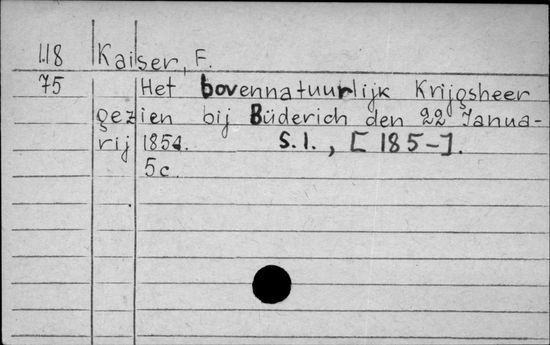 1.18 Kaiser, F.
75 Het bovennatuurlijk Krijgsheer
gezien bij Büderich den 22 Janua-
rij 1854. S.l., [185-].
5c.